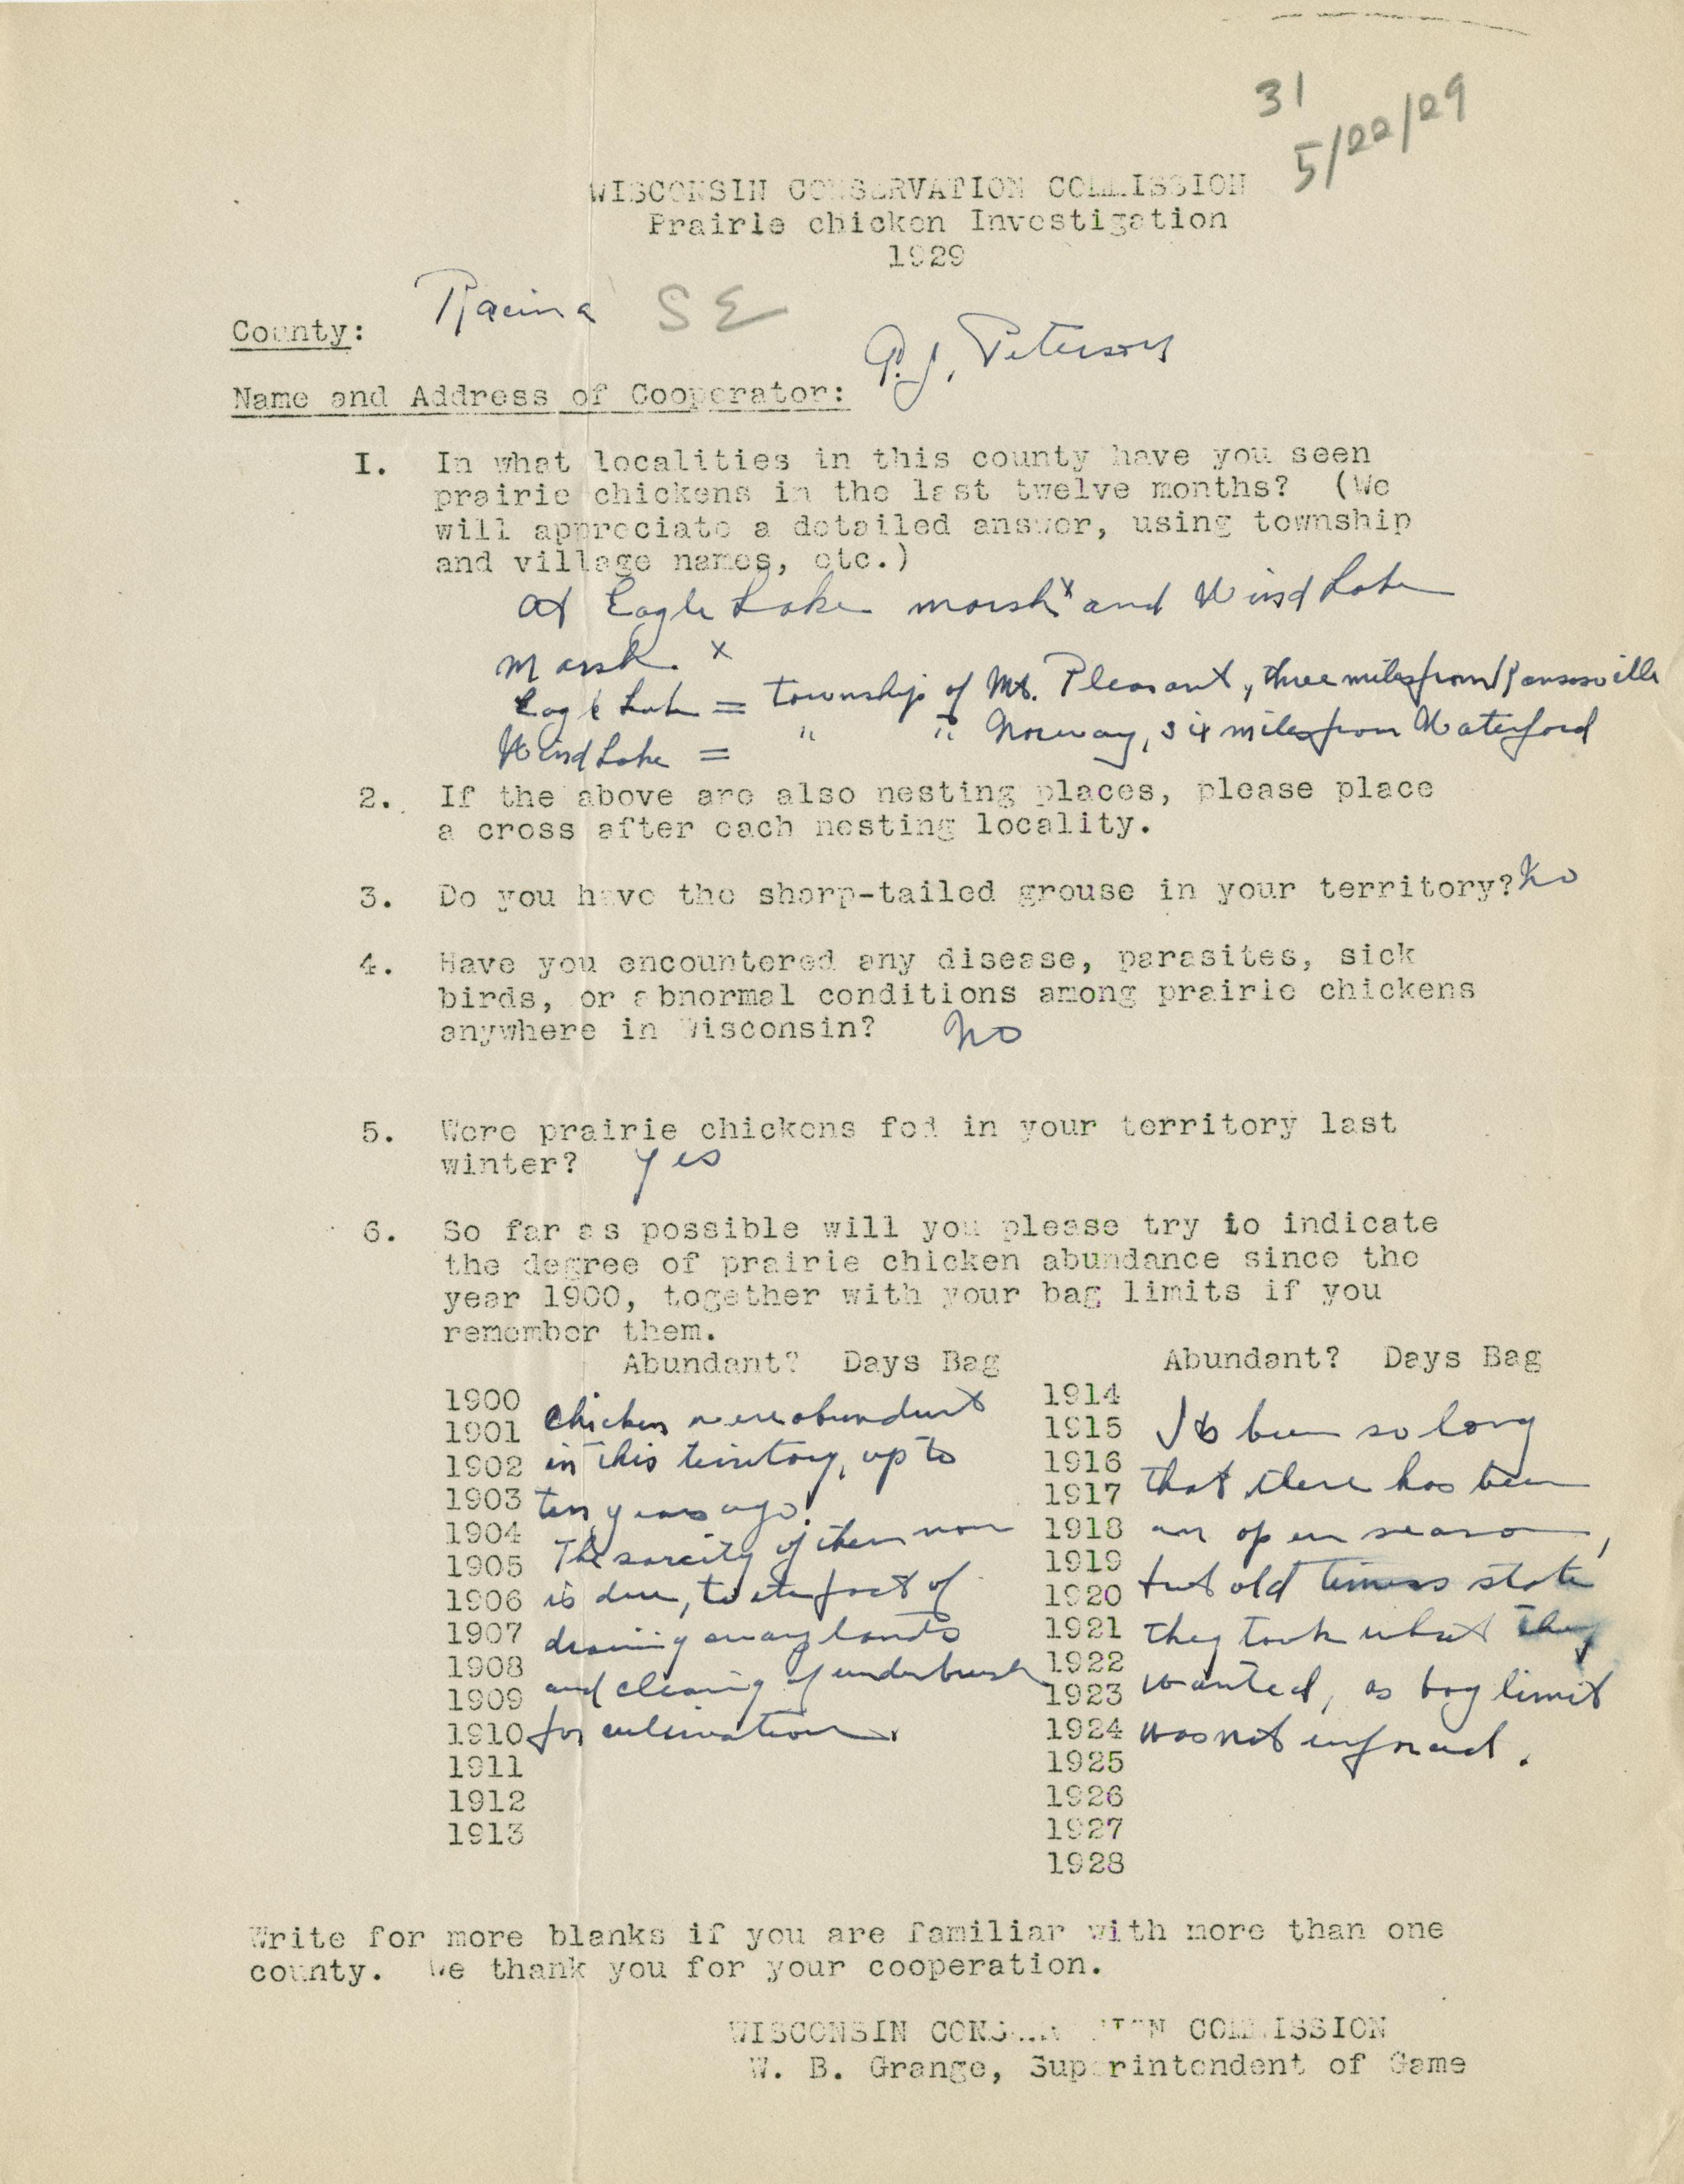 31
5/22/29
WISCONSIN CONSERVATION COMMISSION
Prairie chicken Investigation
1929
County: Racine SE
Name and Address of Cooperator: P.J. Peterson
I. In what localities in this county have you seen
prairie chickens in the last twelve months? (We
will appreciate a detailed answer, using township
and village names, etc.)
At Eagle Lake marsh x and Wind Lake
marsh. x
Eagle Lake = township of Mt. Pleasant, three miles from Kansasville
Wind Lake = " " Norway, six miles from Waterford
2. If the above are also nesting places, please place
a cross after each nesting locality.
3. Do you have the sharp-tailed grouse in your territory? No
4. Have you encountered any disease, parasites, sick
birds, or abnormal conditions among prairie chickens
anywhere in Wisconsin? No
5. Were prairie chickens fed in your territory last
winter? Yes
6. So far as possible will you please try to indicate
the degree of prairie chicken abundance since the
year 1900, together with your bag limits if you
remember them.
Abundant? Days Bag
1900
1901 Chicken were abundant
1902 in this territory, up to
1903 ten years ago.
1904
1905 The sarcity of them now
1906 is due, to the fact of
1907 draining away lands
1908
1909 and clearing of underbrush
1910 for cultivation.
1911
1912
1913
Abundant? Days Bag
1914
1915 Its been so long
1916
1917 that there has been
1918 an open season,
1919
1920 but old timers state
1921 they took what they
1922
1923 wanted, as bag limit
1924 was not enforced.
1925
1926
1927
1928
Write for more blanks if you are familiar with more than one
county. We thank you for your cooperation.
WISCONSIN CONSERVATION COMMISSION
W. B. Grange, Superintendent of Game